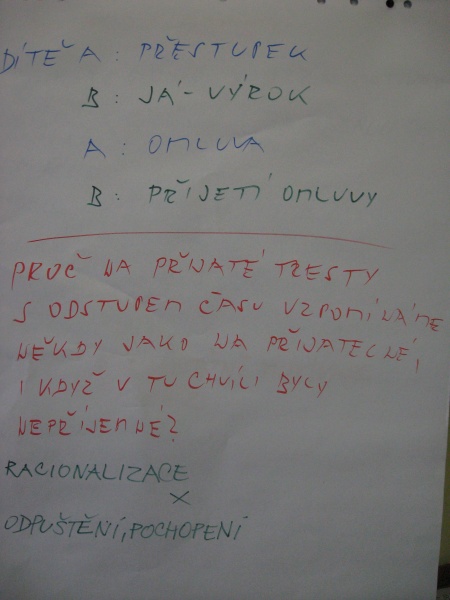 DÍTĚ A: PŘESTUPEK
B: JÁ-VÝROK
A: OMLUVA
B: PŘIJETÍ OMLUVY
PROČ NA PŘIJATÉ TRESTY
S ODSTUPEM ČASU VZPOMÍNÁME
NĚKDY JAKO NA PŘIJATELNÉ,
I KDYŽ V TU CHVÍLI BYLY
NEPŘÍJEMNÉ?
RACIONALIZACE
X
ODPUŠTĚNÍ, POCHOPENÍ